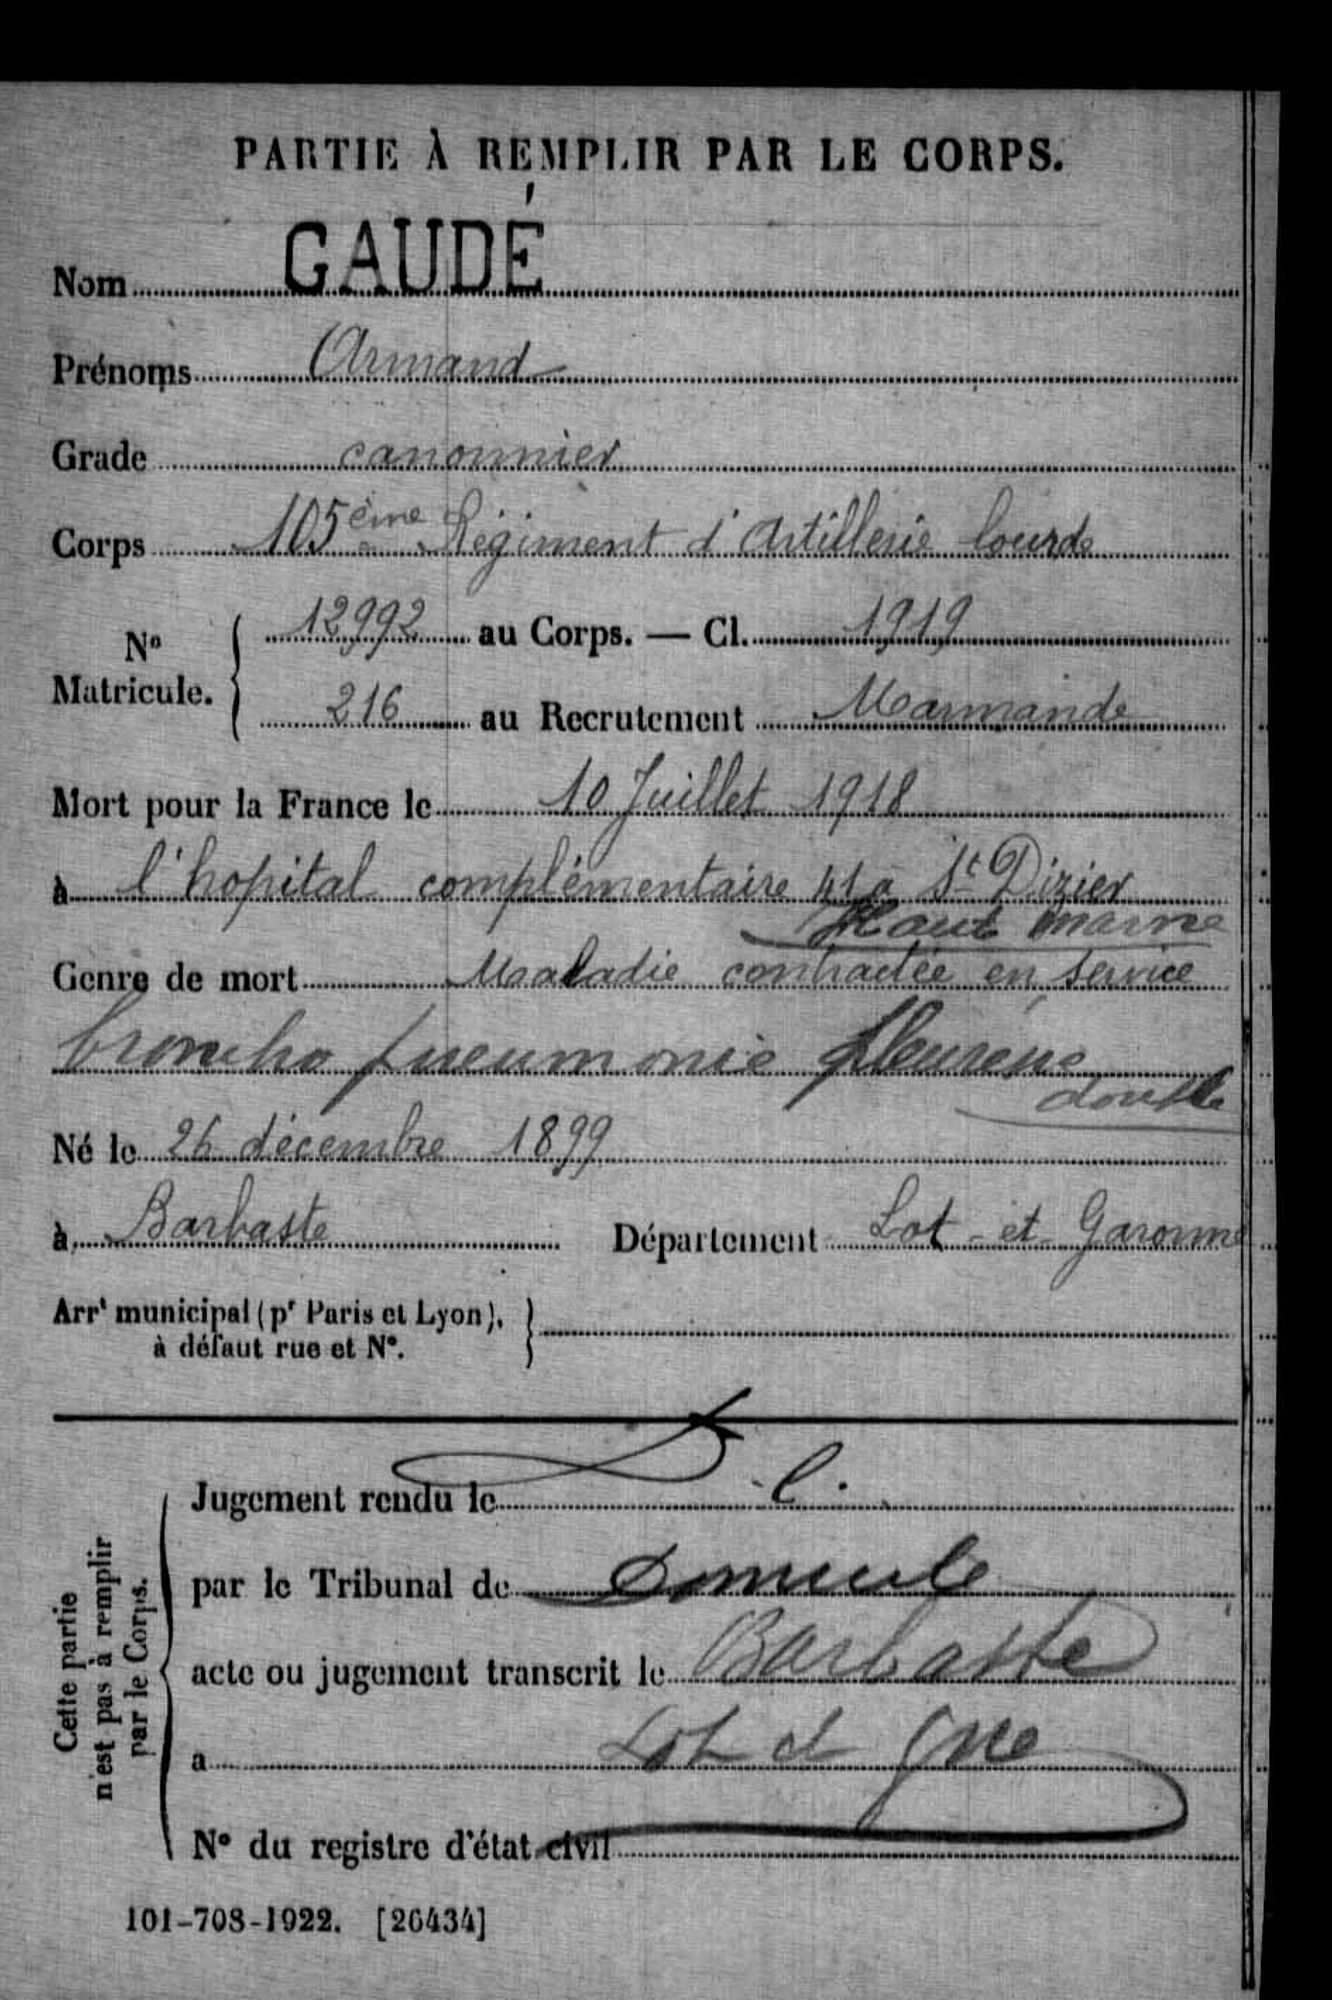 PARTIE À REMPLIR PAR LE CORPS.
Nom GAUDÉ
Prénoms Armand
Grade canonnier
Corps 105ème Régiment d'Artillerie lourde
Nº Matricule. 12992 au Corps. — Cl. 1919
216 au Recrutement Marmande
Mort pour la France le 10 Juillet 1918
à l'hopital complémentaire 41 à St Dizier
Haut marne
Genre de mort Maladie contractée en service
broncho pneumonie pleurésie
double
Né le 26 décembre 1899
à Barbaste Département Lot-et-Garonne
Arrt municipal (pr Paris et Lyon),
à défaut rue et Nº.
Cette partie
n'est pas à remplir
par le Corps.
Jugement rendu le
par le Tribunal de Domicile
acte ou jugement transcrit le Barbaste
a Lot et Gne
Nº du registre d'état civil
101-708-1922. [26434]